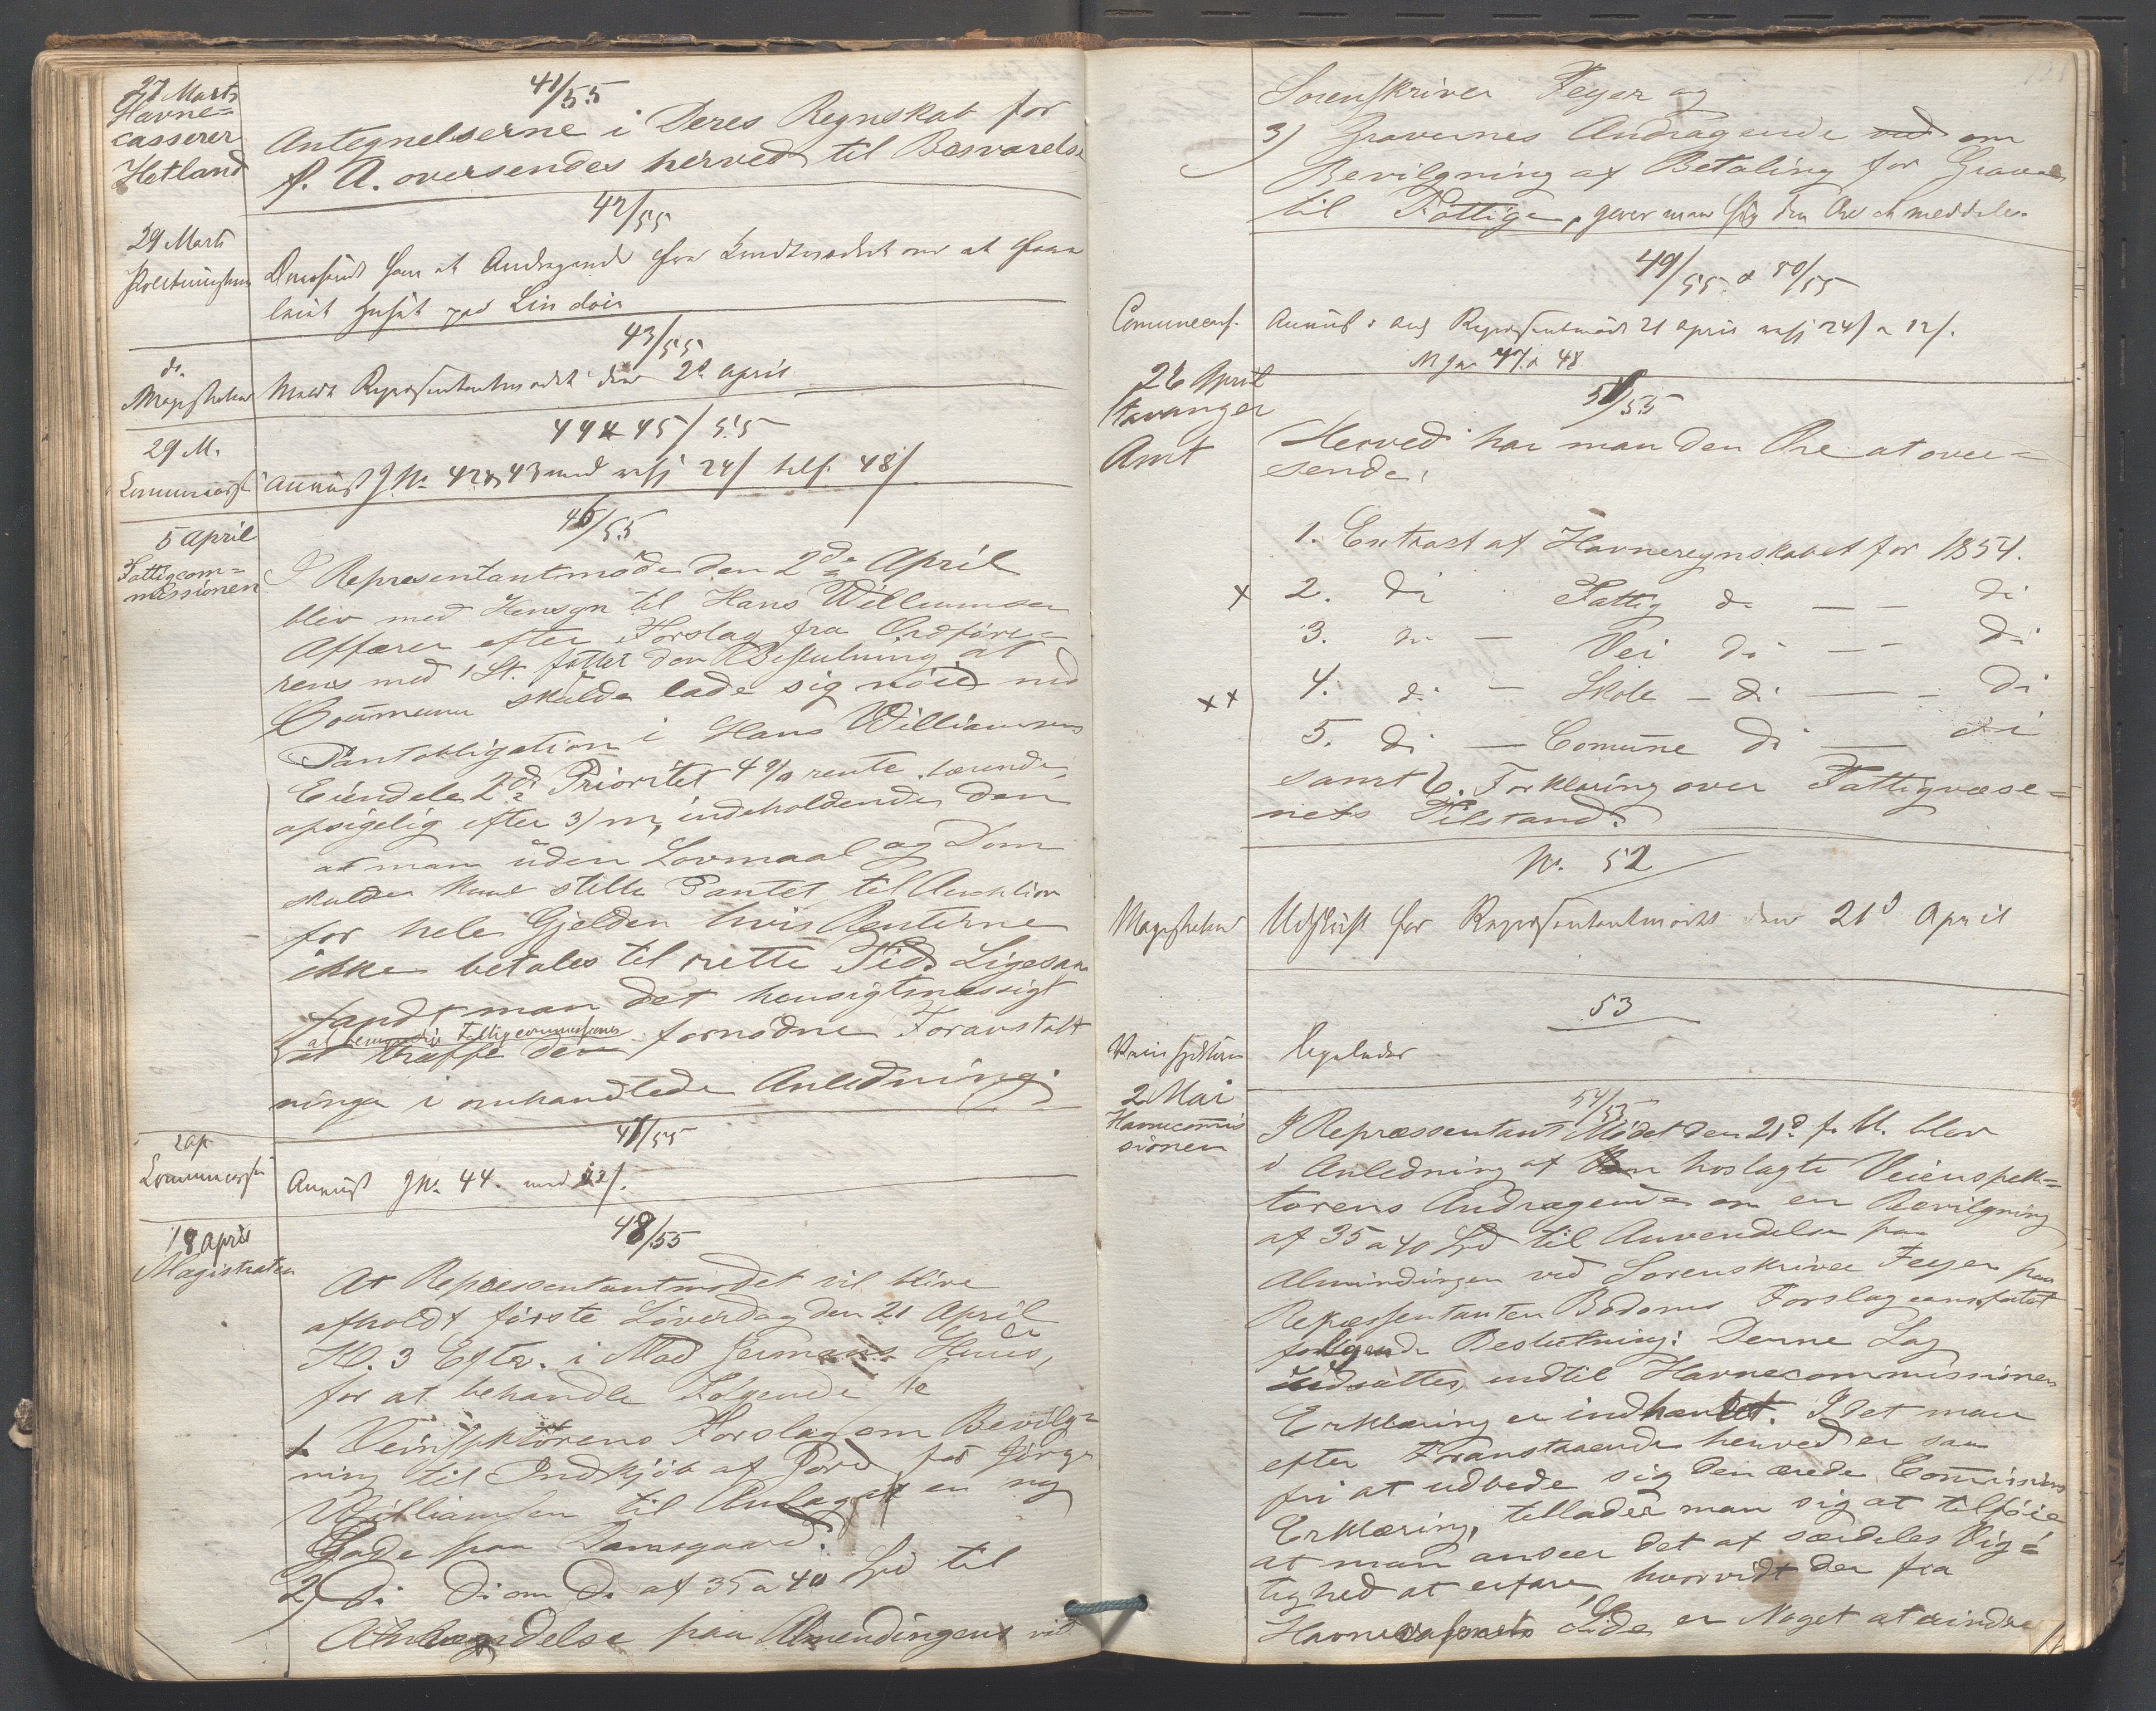 27 Marts
Havne=
casserer
Hetland
41/55
Antegnelserne i Deres Regnskab for
f. A. oversendes herved til Besvarelse
42/55
29 Marts
Andragende fra om at faae
43/55
do.
Magistraten
Repræsentantmødet den 2d April
44 & 45/55
29 M.
JNo 42 & 43 med 24/ 48/
46/55
5 April
Fattigcom=
missionen
I Repræsentantmøde den 2de April
blev med Hensyn til Hans Williamsen
Affærer efter Forslag fra Ordføre=
rens med 1 St. fattet den Beslutning at
Communen skulde lade sig nøie med
Pantobligation i Hans Williamsens
Eiendele 2de Prioritet 4% rente bærende,
opsigelig efter 3/m, indeholdende den
at man uden Lovmaal og Dom
skulde kune stille Pantet til Auction
for hele Gjelden hvis Renterne
ikke betales til rette Tid. Ligesaa
fandt man det hensigtmæssigt
at Fattigcommissionen
at træffe den fornødne Foranstalt
ninger i omhandlede Anledning.
47/55
2 Ap
JNo 44. med 12/.
48/55
18 April
Magistraten
At Repræsentantmødet vil blive
afholdt første Løverdag den 21 April
Kl. 3 Efter. i Mad Jermans Huus,
for at behandle Følgende
1 Veiinspektørens Forslag om Bevilg=
ning til Indkjøb af Jord for Jørgen
Williamsen til Anlæget en ny
Gade paa Damsgaard.
2) Do Do om Do af 35 a 40 Spd til
Anvendelse paa Almendingens ved
Sorenskriver Feyer og
3) Graverens Andragende ved om
Bevilgning af Betaling for Grave
til Fattige, giver man sig den Ære at meddele.
49/55 & 50/55
Comunecass.
Repræsentmøde 21 April 24/ a 12/.
47 & 48
26 April
Stavanger
Amt
51/55
Herved har man den Ære at over=
sende:
1. Extract af Havneregnskabet for 1854.
x 2. do Fattig do — — do
3. do — Vei do — — do
xx 4. do — Skole — do — — do
5. do — Comune do — do
samt 6. Forklaring over Fattigvæse=
nets Tilstand.
No. 52
Magistraten
Udskrift for Repræsentantmødet den 21d April
53
Veiinspektøren
Ligeleder
54/55
2 Mai
Havnecommis
sionen
I Repræsentant Mødet den 21d f. M. blev
i Anledning af hoslagte Veiinspek=
tørens Andragende om en Bevilgning
af 35 a 40 Spd til Anvendelse paa
Almindingen ved Sorenskriver Feyer paa
Repræsentanten Bødoms Forslag
følgende Beslutning: Denne Sag
udsættes indtil Havnecommissionens
Erklæring er indhentet. Idet man
efter Foranstaaende herved er saa
fri at udbede sig den ærede Commissions
Erklæring, tillader man sig at tilføie
at man anseer det af særdeles Vig=
tighed at erfare, hvorvidt der fra
Havnevæsenets Side er Noget at erindre